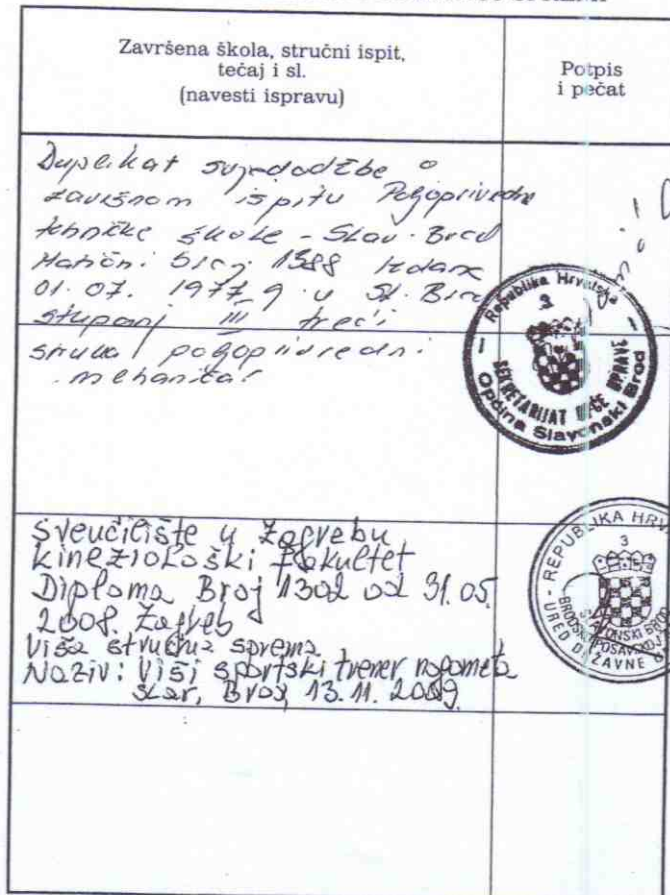 Završena škola, stručni ispit,
tečaj i sl.
(navesti ispravu)
Potpis
i pečat
Duplikat svjedodžbe o
završnom ispitu Poljoprivredne
tehničke škole - Slav. Brod
Matični broj 1388 izdana
01.07. 1977 g. u Sl. Brod
stupanj III treći
struka poljoprivredni
mehaničar
Republika Hrvatska
3
SEKRETARIJAT UPRAVE
Općina Slavonski Brod
Sveučilište u Zagrebu
Kineziološki fakultet
Diploma Broj 1302 od 31.05.
2008. Zagreb
Viša stručna sprema
Naziv: Viši sportski trener nogometa
Slav. Brod, 13.11. 2009.
REPUBLIKA HRV
3
URED DRŽAVNE
BRODSKO-POSAVSKO
SLAVONSKI BRO